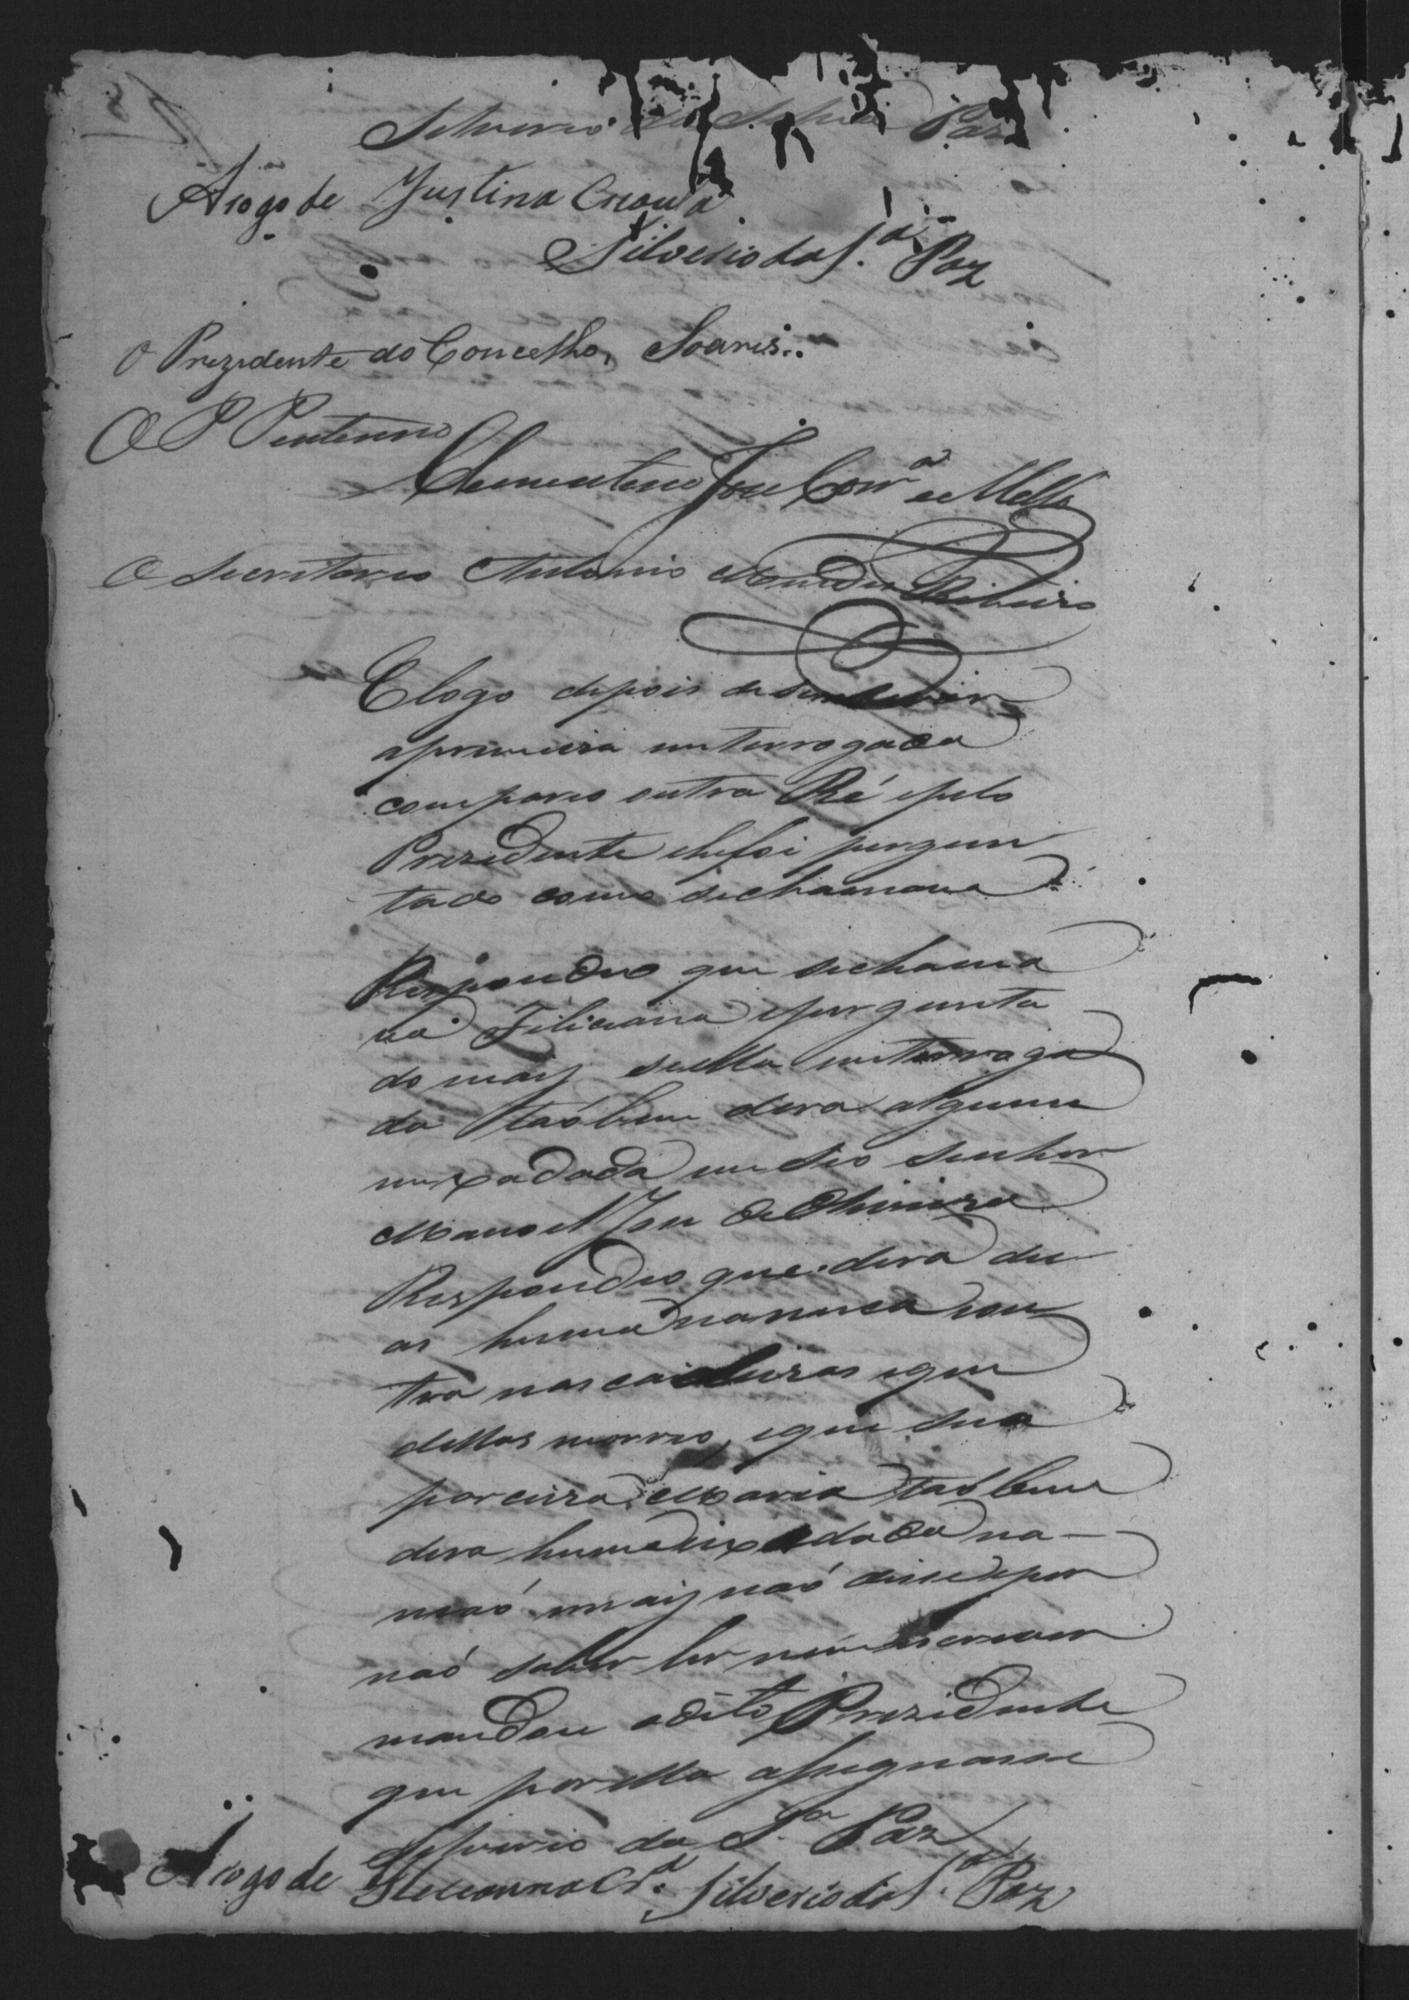 Silverio da Silva Paz
A rogo de Justina Crioula
Silverio da S.ª Paz
O Prezidente do Concelho, Soares..
O P Penteeno
Clementino Jose Corr.ª de Mello
O Secritario Antonio Mendes Ribeiro
E logo depois de
aprimeira interrogada
compareo outra Ré epelo
Prezidente lhefoi pergun
tado como sechamava
Respondeo que sechama
va Filiciana eprgunta
do maiz seella interroga
da taobem dera alguma
inxadada em seo Senhor
Manoel Jose de Oliveira
Respondeo que dera du
as huma nanuca eou
tra nas cadeiras eque
dellas morreo, eque sua
parceira Maria taobem
dera huma inxadada na
maó maiz naó disse epor
naó saber ler nem escrever
mandou odito Prezidente
que por ella assignasse
Silverio da S.ª Paz
A rogo de Feliciana Cr.ª Silverio da S.ª Paz